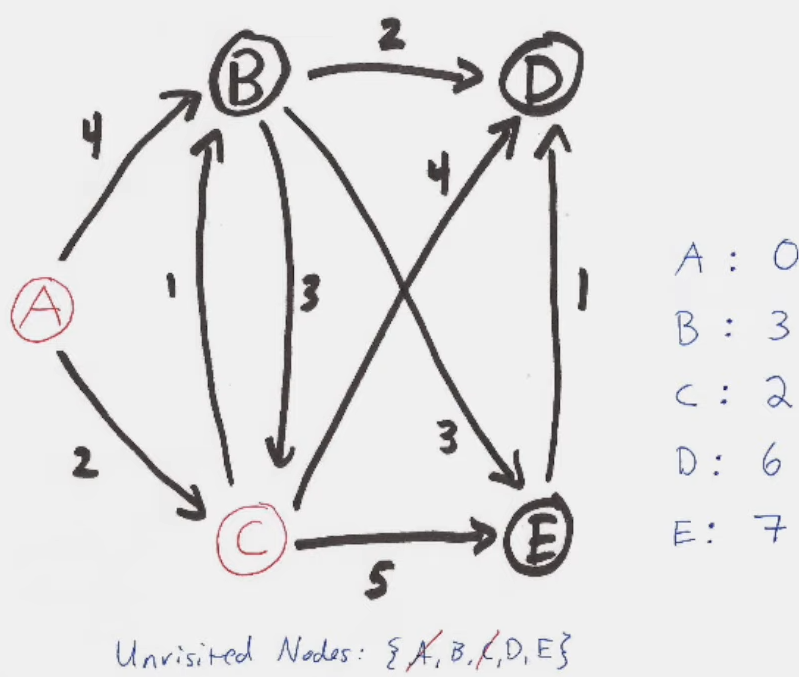 2
B
D
4
4
A
1
3
1
2
3
C
E
5
A : 0
B : 3
C : 2
D : 6
E : 7
Unvisited Nodes: {A, B, C, D, E}